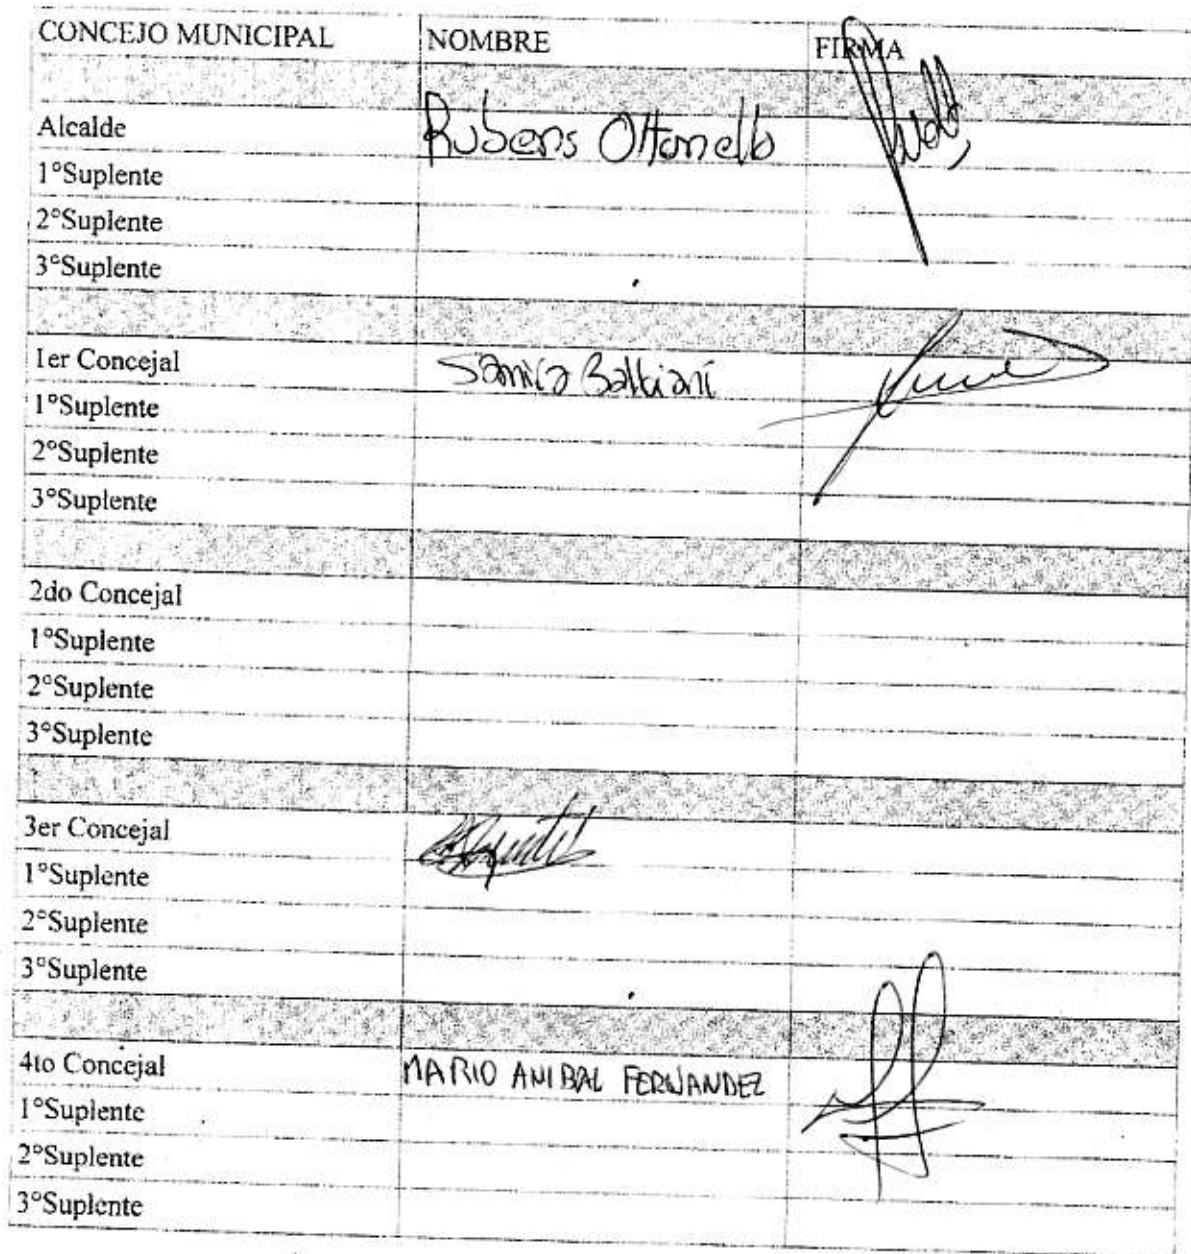 CONCEJO MUNICIPAL NOMBRE FIRMA
Alcalde Rubens Ottonello
1°Suplente
2°Suplente
3°Suplente
1er Concejal
1°Suplente
2°Suplente
3°Suplente
2do Concejal
1°Suplente
2°Suplente
3°Suplente
3er Concejal
1°Suplente
2°Suplente
3°Suplente
4to Concejal MARIO ANIBAL FERNANDEZ
1°Suplente
2°Suplente
3°Suplente